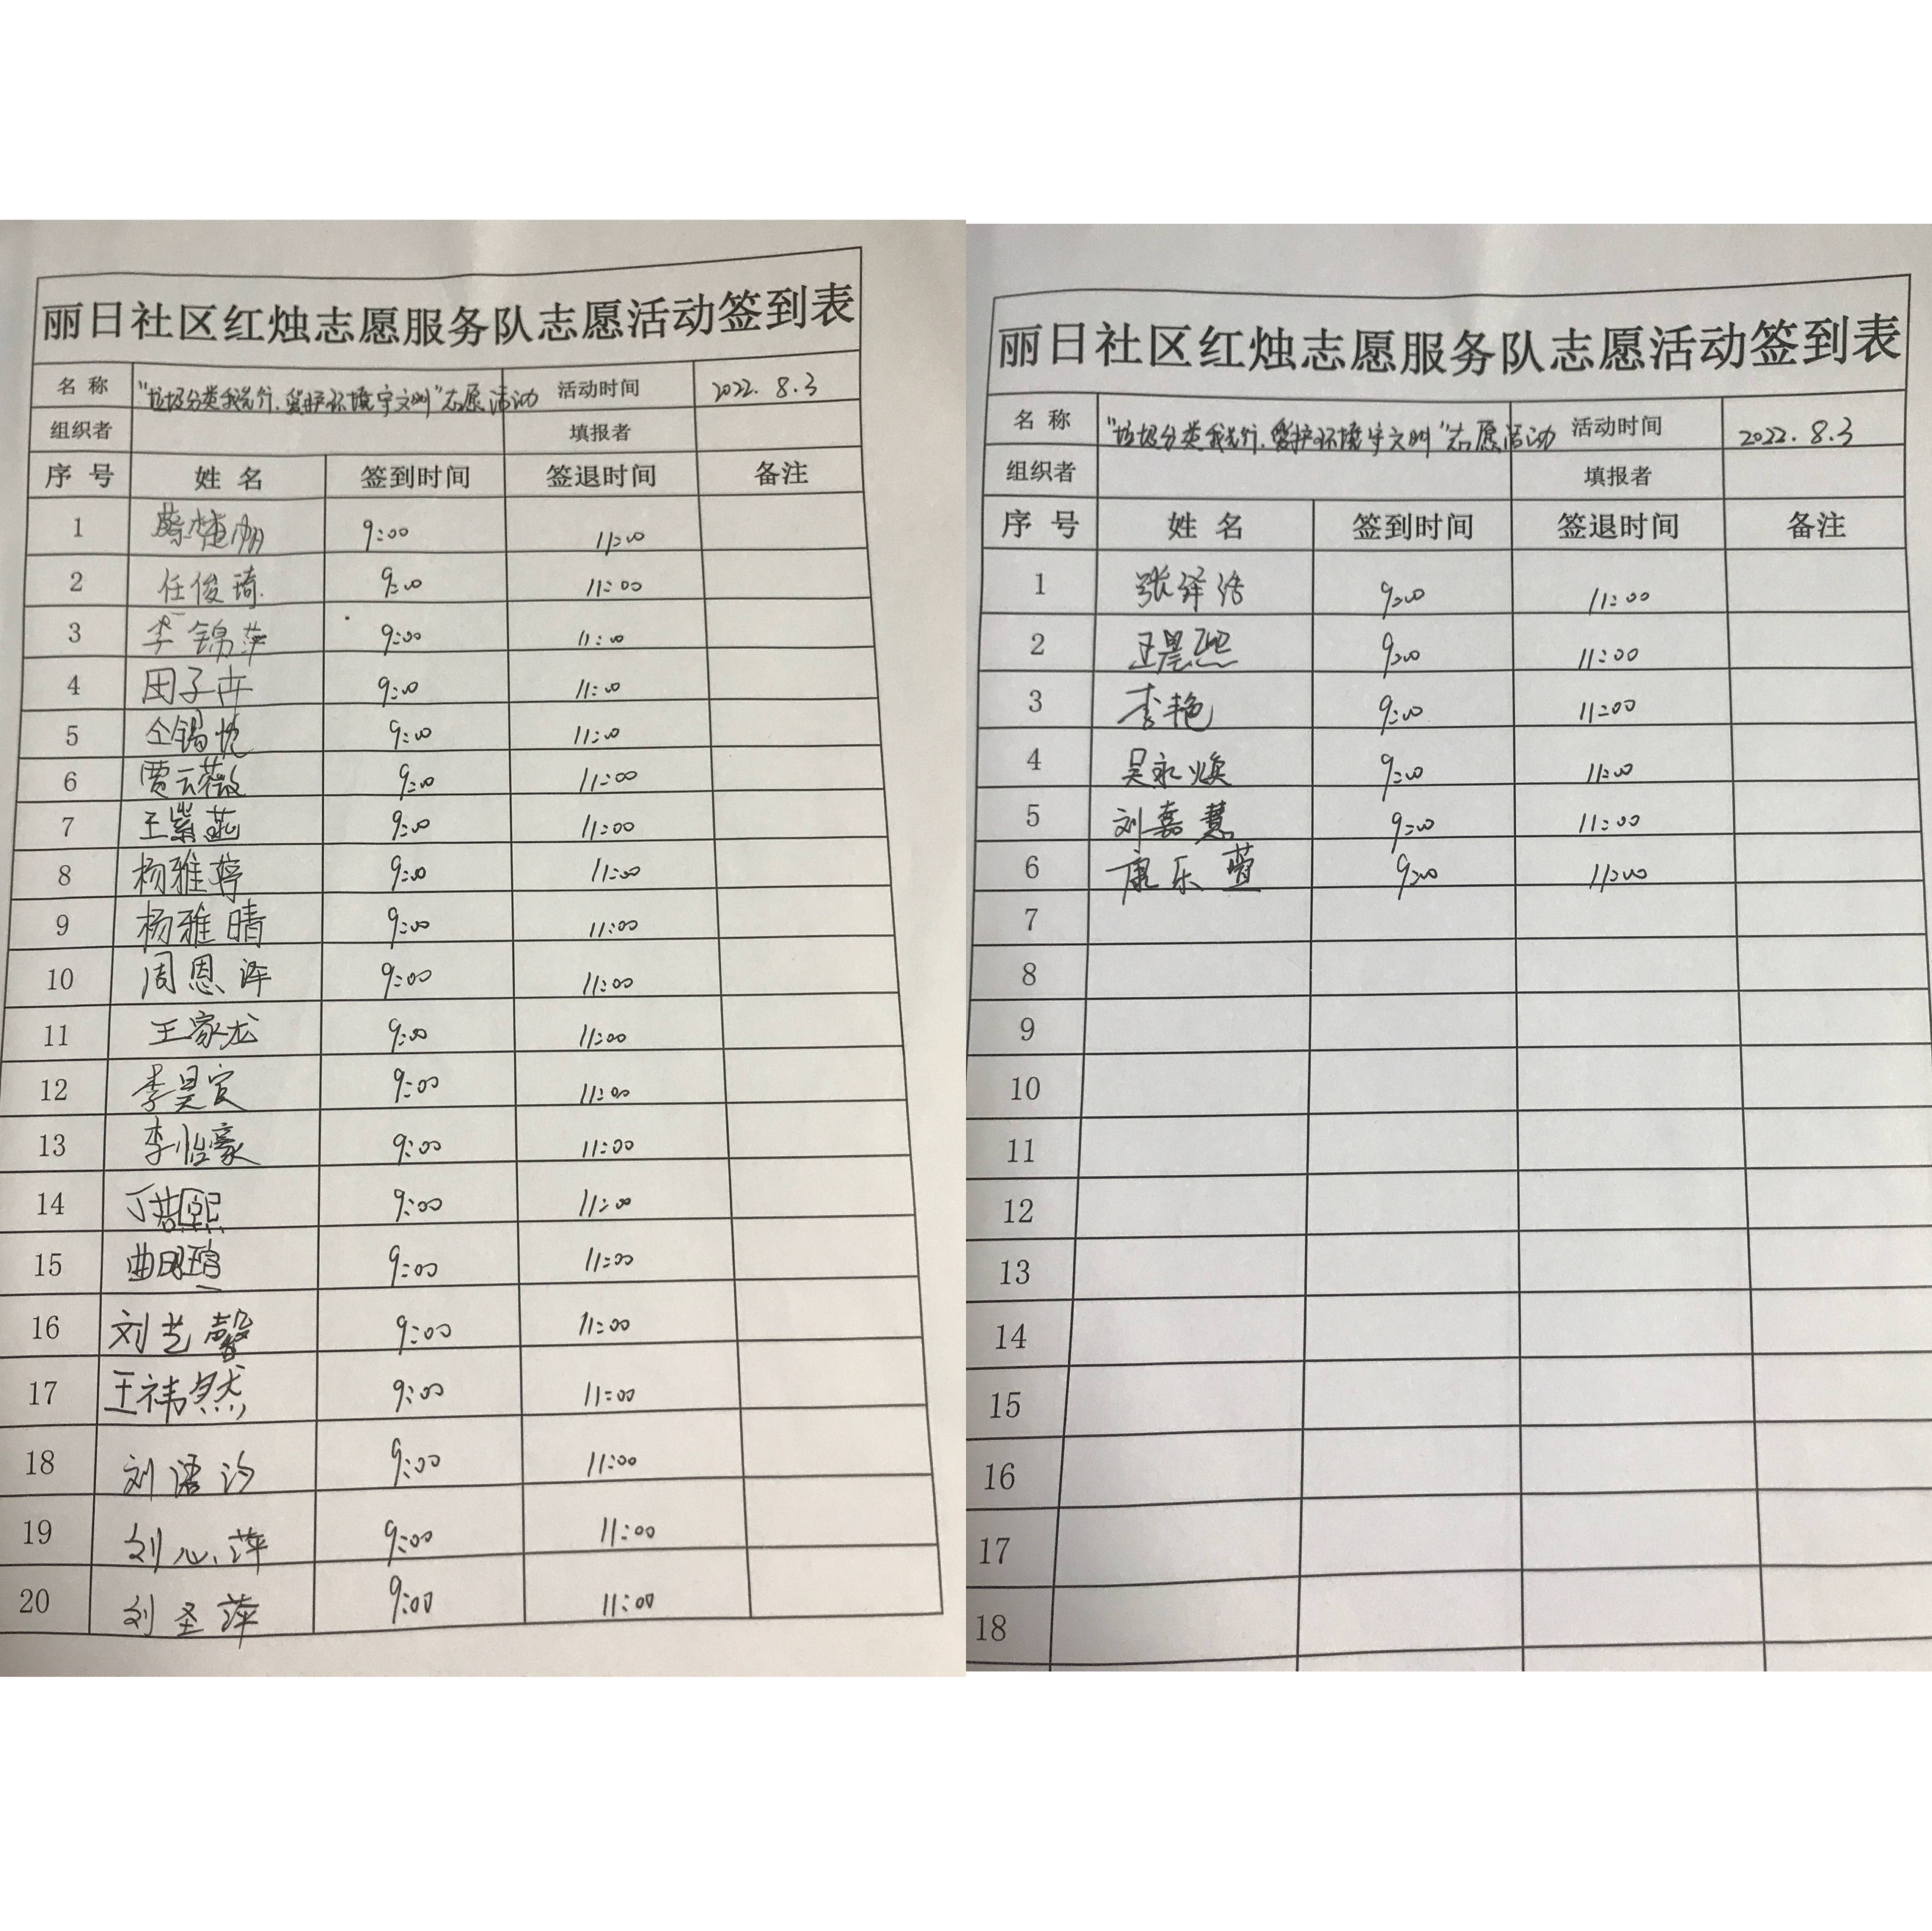 丽日社区红烛志愿服务队志愿活动签到表
名 称 "垃圾分类我先行，爱护环境守文明"志愿活动 活动时间 2022.8.3
组织者 填报者
序 号 姓 名 签到时间 签退时间 备注
1 蔡楚 9:00 11:00
2 任俊琦 9:00 11:00
3 李锦萍 9:00 11:00
4 田子卉 9:00 11:00
5 仝锡悦 9:00 11:00
6 贾云薇 9:00 11:00
7 王紫涵 9:00 11:00
8 杨雅婷 9:00 11:00
9 杨雅晴 9:00 11:00
10 周恩泽 9:00 11:00
11 王家龙 9:00 11:00
12 李昊宸 9:00 11:00
13 李怡豪 9:00 11:00
14 丁若熙 9:00 11:00
15 曲明瑄 9:00 11:00
16 刘艺馨 9:00 11:00
17 王祎然 9:00 11:00
18 刘语汐 9:00 11:00
19 刘心萍 9:00 11:00
20 刘圣萍 9:00 11:00
丽日社区红烛志愿服务队志愿活动签到表
名 称 "垃圾分类我先行，爱护环境守文明"志愿活动 活动时间 2022.8.3
组织者 填报者
序 号 姓 名 签到时间 签退时间 备注
1 张泽浩 9:00 11:00
2 王晨熙 9:00 11:00
3 李艳 9:00 11:00
4 吴永焕 9:00 11:00
5 刘嘉慧 9:00 11:00
6 康乐萱 9:00 11:00
7
8
9
10
11
12
13
14
15
16
17
18